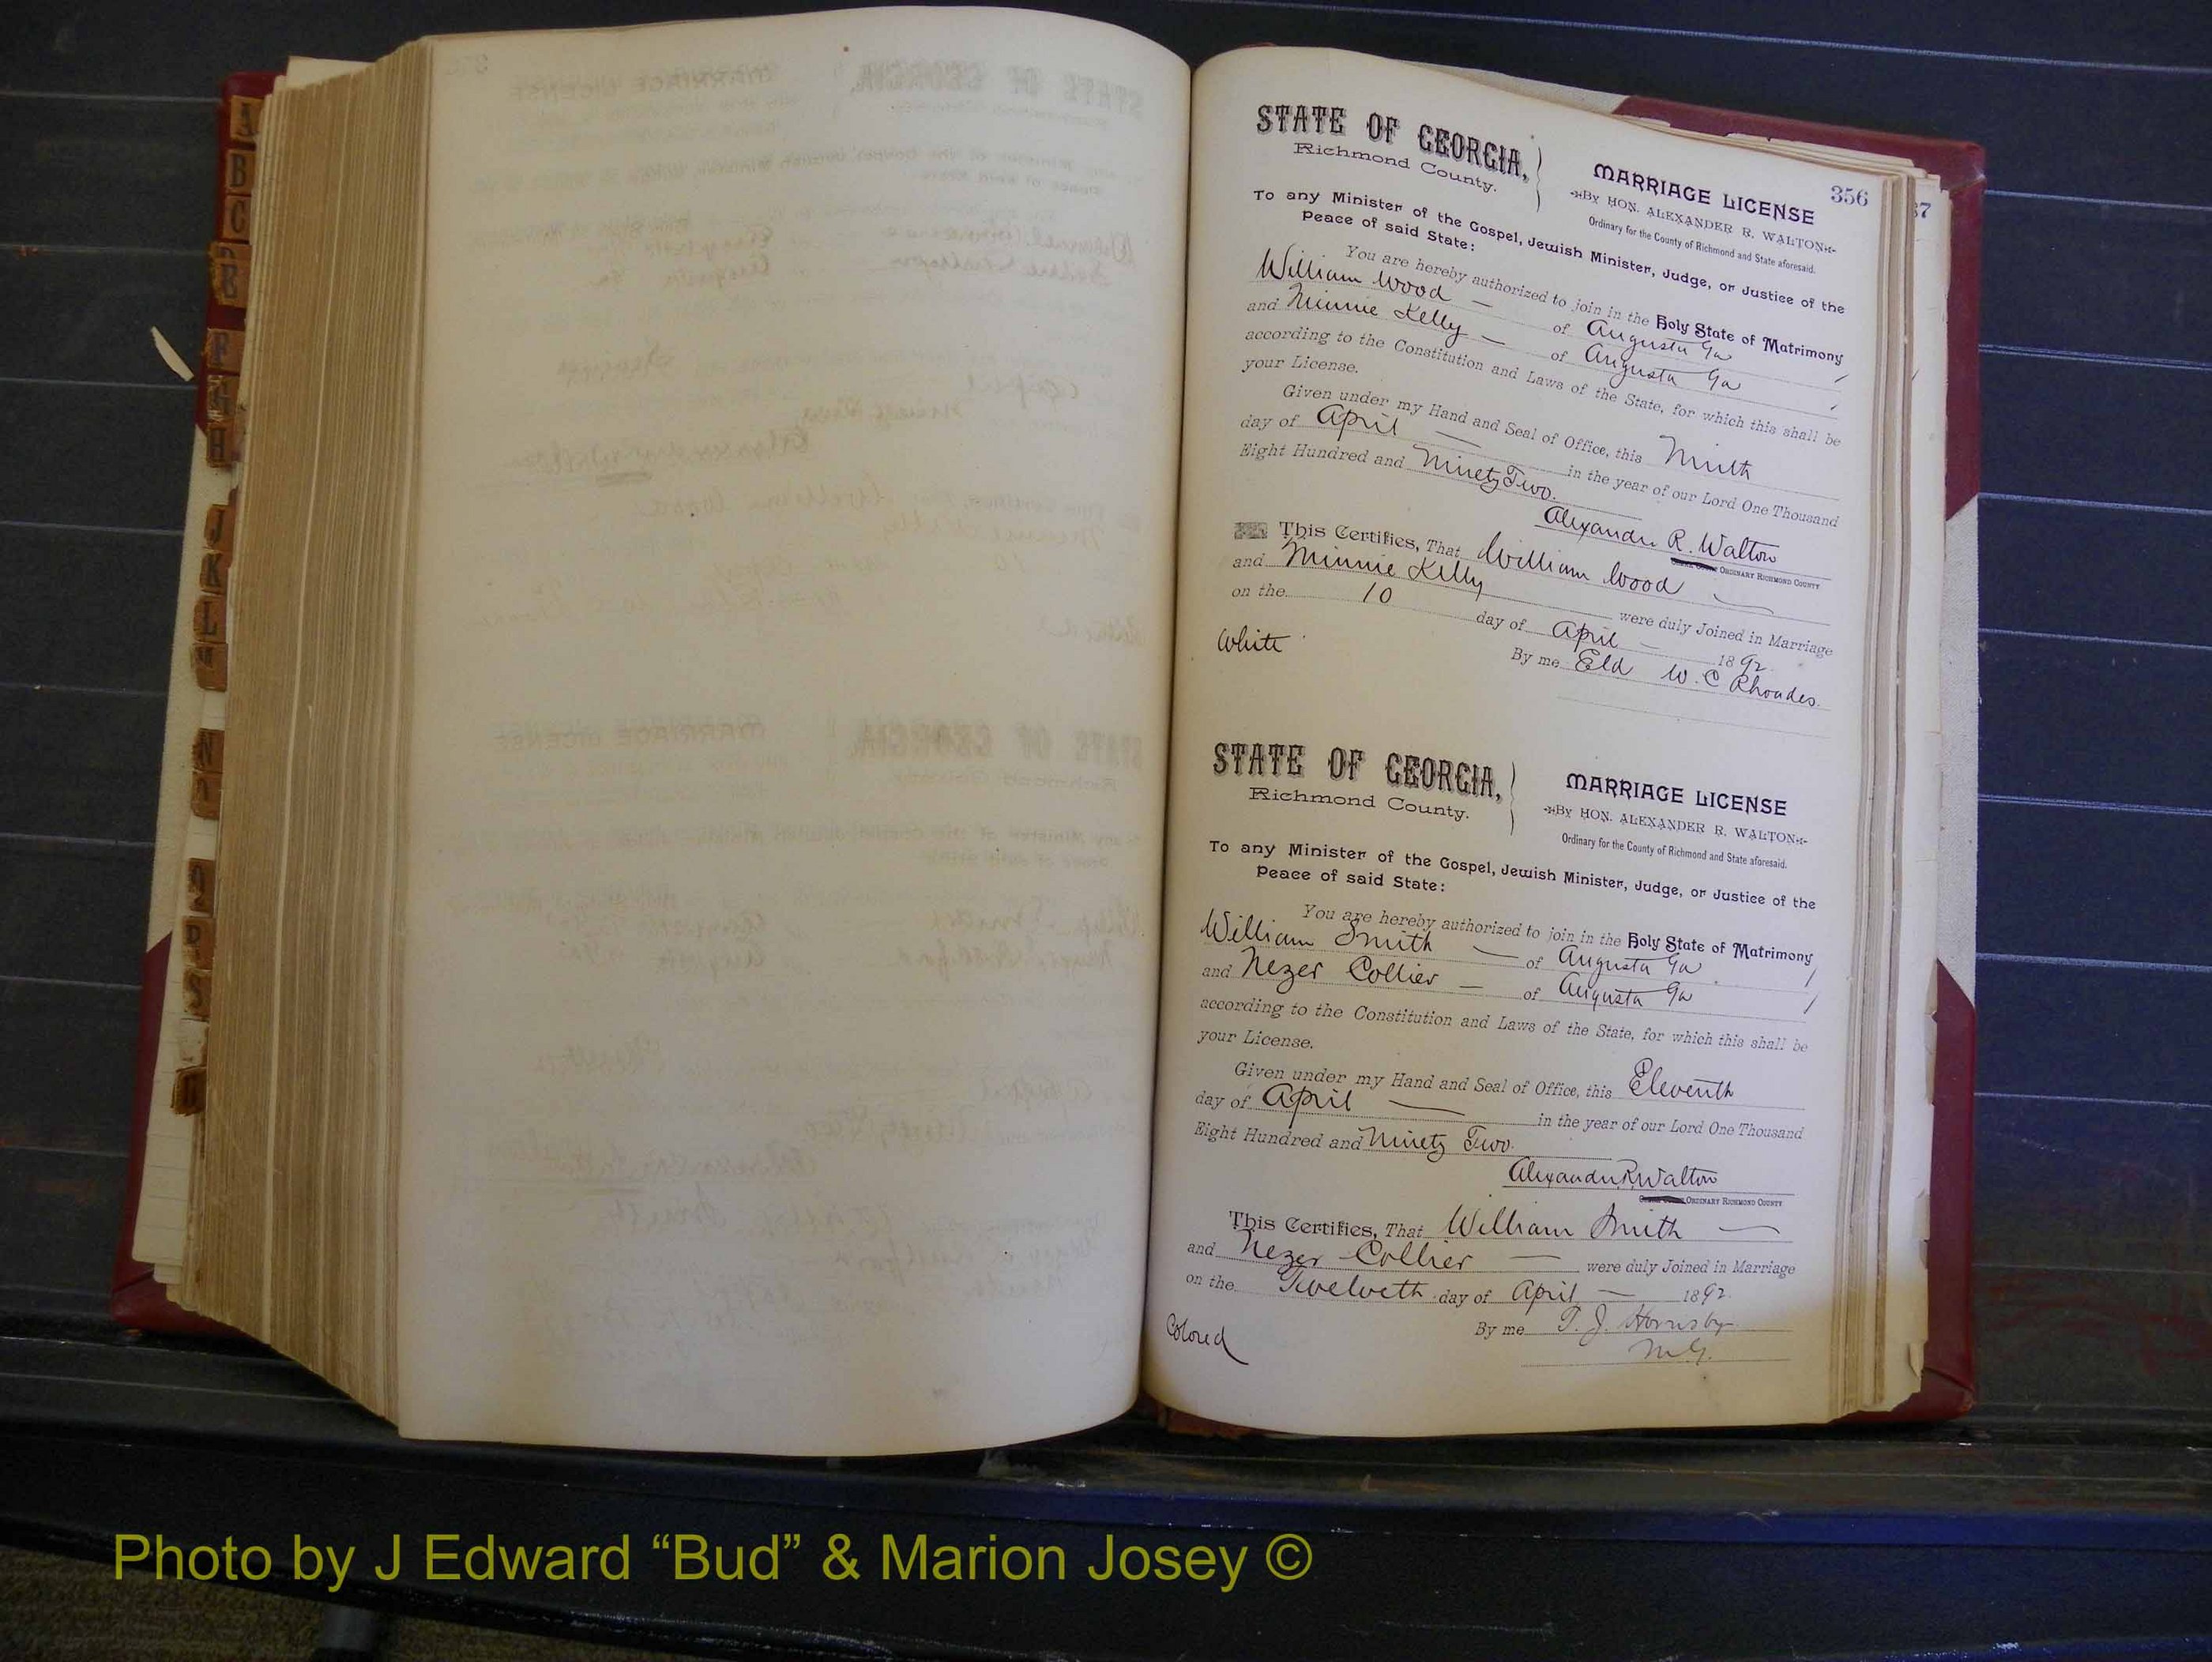 A
B
C
F
G
H
J
K
L
M
N
Q
R
S
356
37
STATE OF GEORGIA,
Richmond County.
MARRIAGE LICENSE
By HON. ALEXANDER R. WALTON
Ordinary for the County of Richmond and State aforesaid.
To any Minister of the Gospel, Jewish Minister, Judge, or Justice of the
Peace of said State:
You are hereby authorized to join in the Holy State of Matrimony
William Wood — of Augusta Ga
and Minnie Kelly — of Augusta Ga
according to the Constitution and Laws of the State, for which this shall be
your License.
Given under my Hand and Seal of Office, this Ninth
day of April — in the year of our Lord One Thousand
Eight Hundred and Ninety Two.
Alexander R. Walton
ORDINARY RICHMOND COUNTY
This Certifies, That William Wood —
and Minnie Kelly were duly Joined in Marriage
on the 10 day of April — 1892.
White
By me Eld W. C Rhoades.
STATE OF GEORGIA,
Richmond County.
MARRIAGE LICENSE
By HON. ALEXANDER R. WALTON
Ordinary for the County of Richmond and State aforesaid.
To any Minister of the Gospel, Jewish Minister, Judge, or Justice of the
Peace of said State:
You are hereby authorized to join in the Holy State of Matrimony
William Smith — of Augusta Ga
and Nezer Collier — of Augusta Ga
according to the Constitution and Laws of the State, for which this shall be
your License.
Given under my Hand and Seal of Office, this Eleventh
day of April — in the year of our Lord One Thousand
Eight Hundred and Ninety Two.
Alexander R. Walton
ORDINARY RICHMOND COUNTY
This Certifies, That William Smith —
and Nezer Collier — were duly Joined in Marriage
on the Twelveth day of April — 1892
Colored
By me T. J. Hornsby
M.G.
Photo by J Edward “Bud” & Marion Josey ©